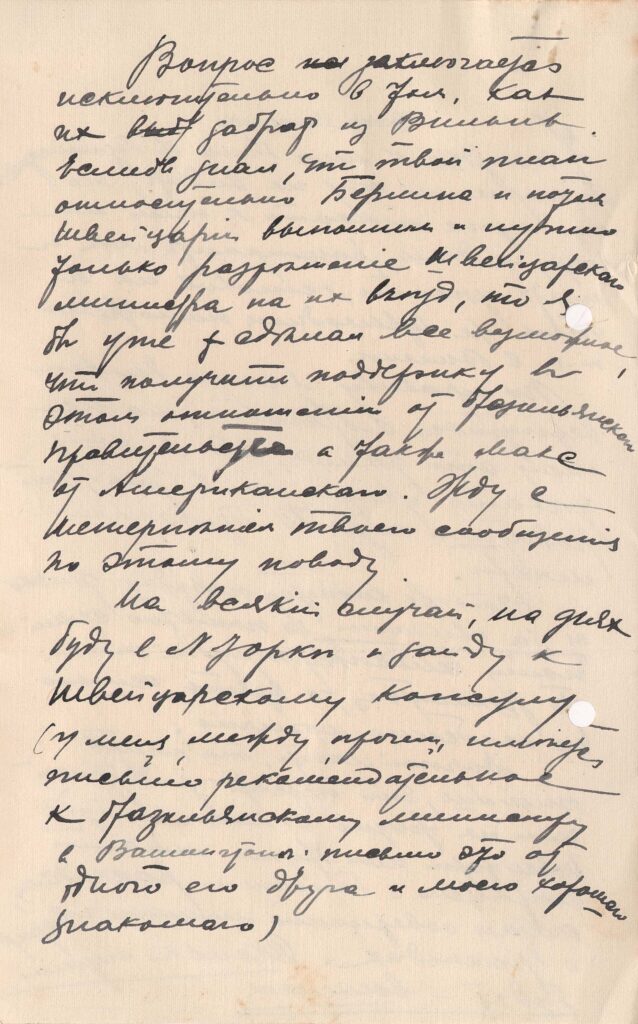 Вопрос заключается
исключительно в том, как
их забрать из Вильны.
Если бъ знал, что твой план
относительно Берлина и потом
Швейцаріи выполним и нужно
только разрѣшеніе Швейцарскаго
министра на их въѣзд, то я
бы уже сдѣлал все возможное,
что получить поддержку въ
этом отношеніи от бразильянскаго
правительства а также
от Американскаго. Жду с
нетерпѣніем твоего сообщенія
по этому поводу
На всякій случай, на днях
буду в N Іоркѣ и зайду к
Швейцарскому консулу
(у меня между прочим, имѣется
письмо рекомендательное
к бразильянскому министру
в Вашингтонѣ. письмо это от
одного его друга и моего хорошаго
знакомаго)